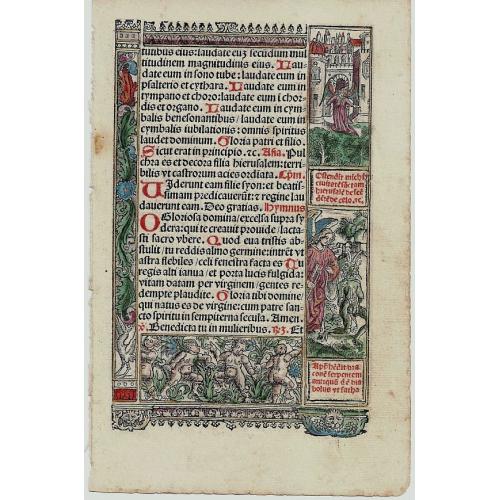 tutibus eius: laudate eum secūdum mul
titudinem magnitudinis eius. Lau
date eum in sono tube: laudate eum in
psalterio et cythara. Laudate eum in
tympano et choro: laudate eum ī chor
dis et organo. Laudate eum in cym
balis benesonantibus / laudate eum in
cymbalis iubilationis: omnis spiritus
laudet dominum. Gloria patri et filio.
Sicut erat in principio. ⁊c. Aña. Pul
chra es et decora filia hierusalem: terri
bilis vt castrorum acies ordīata. Cpm.
Uiderunt eam filie syon: et beatis
simam predicauerūt: ⁊ regine lau
dauerunt eam. Deo gratias. Hymnus
O Gloriosa domina / excelsa supra sy
dera: qui te creauit prouide / lacta
sti sacro vbere. Quod eua tristis ab
stulit / tu reddis almo germine: intrēt vt
astra flebiles / celi fenestra facta es. Tu
regis alti ianua / et porta lucis fulgida:
vitam datam per virginem / gentes re
dempte plaudite. Gloria tibi domine
qui natus es de virgine: cum patre san
cto spiritu in sempiterna secula. Amen.
Benedicta tu in mulieribus. Et
Ostendit michi
ciuitatē sāctam
hierusalē descē
dētē de celo. ⁊c.
dra
conē serpentem
antiquū
bolus